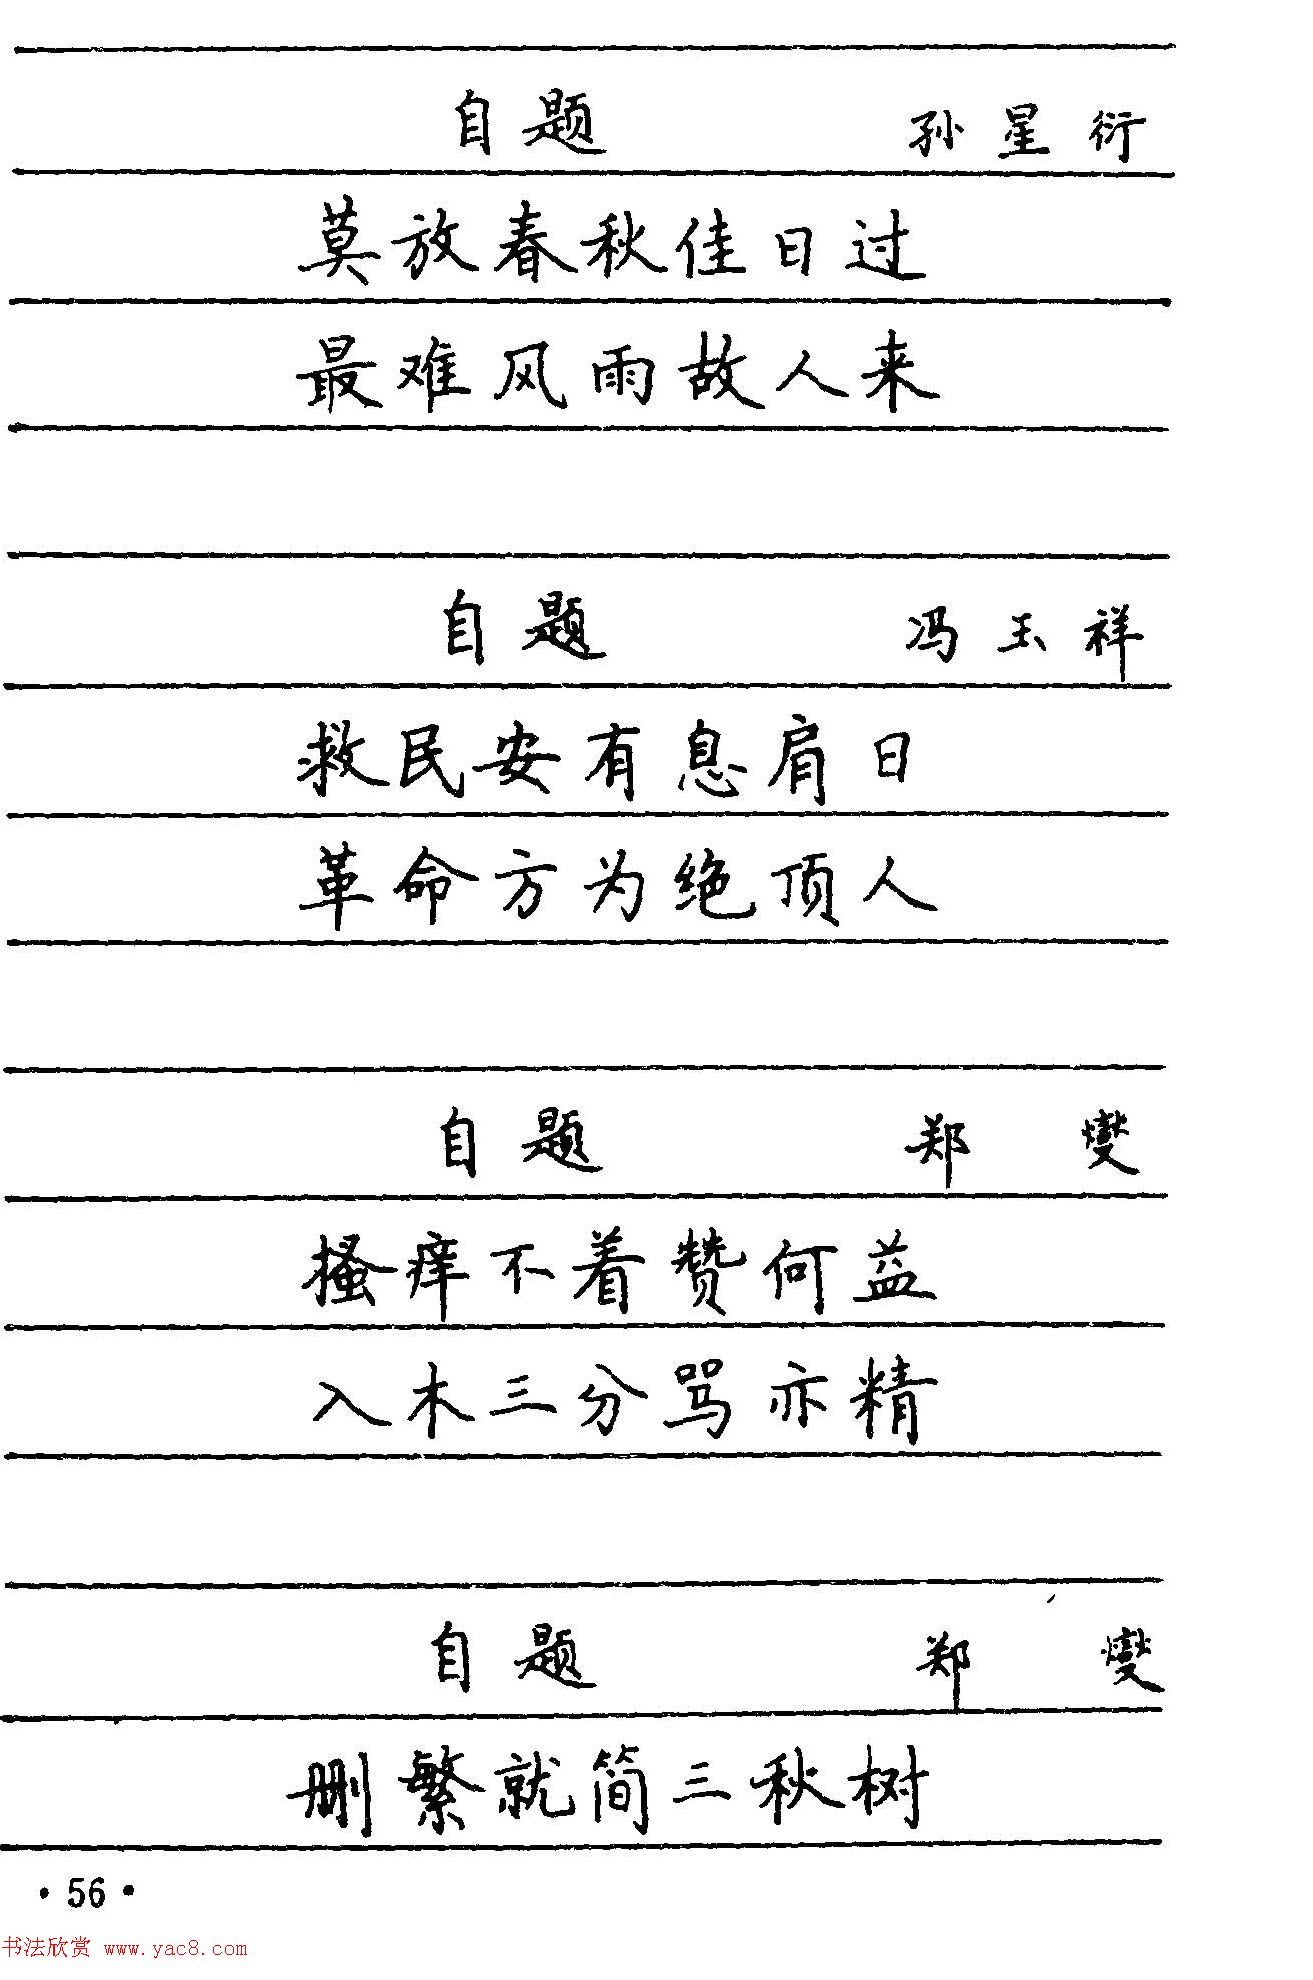 自题 孙星衍
莫放春秋佳日过
最难风雨故人来
自题 冯玉祥
救民安有息肩日
革命方为绝顶人
自题 郑燮
搔痒不着赞何益
入木三分骂亦精
自题 郑燮
删繁就简三秋树
·56·
书法欣赏 www.yac8.com